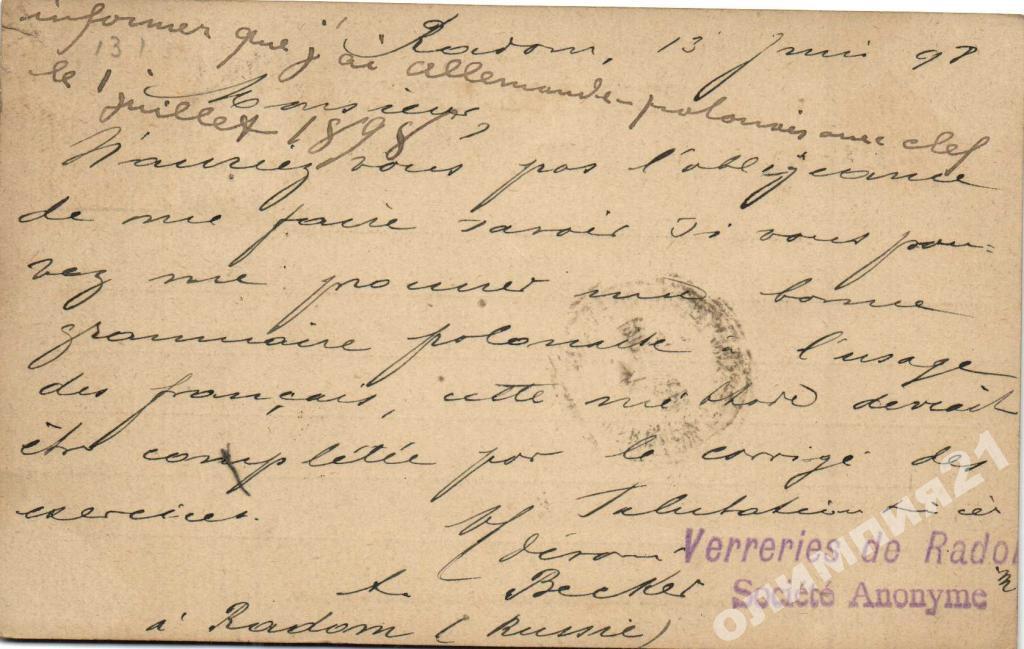 informer que j'ai allemande-polonais avec clef
131
le 1 juillet 1898
Radom, 13 Juin 98
Monsieur,
N'auriez vous pas l'obligeance
de me faire savoir si vous pou=
vez me procurer une bonne
grammaire polonaise l'usage
des français, cette méthode devrait
être complétée par le corrigé des
exercices.
Salutations
Verreries de Radom
Société Anonyme
A. Becker
à Radom (Russie)
олимпия21